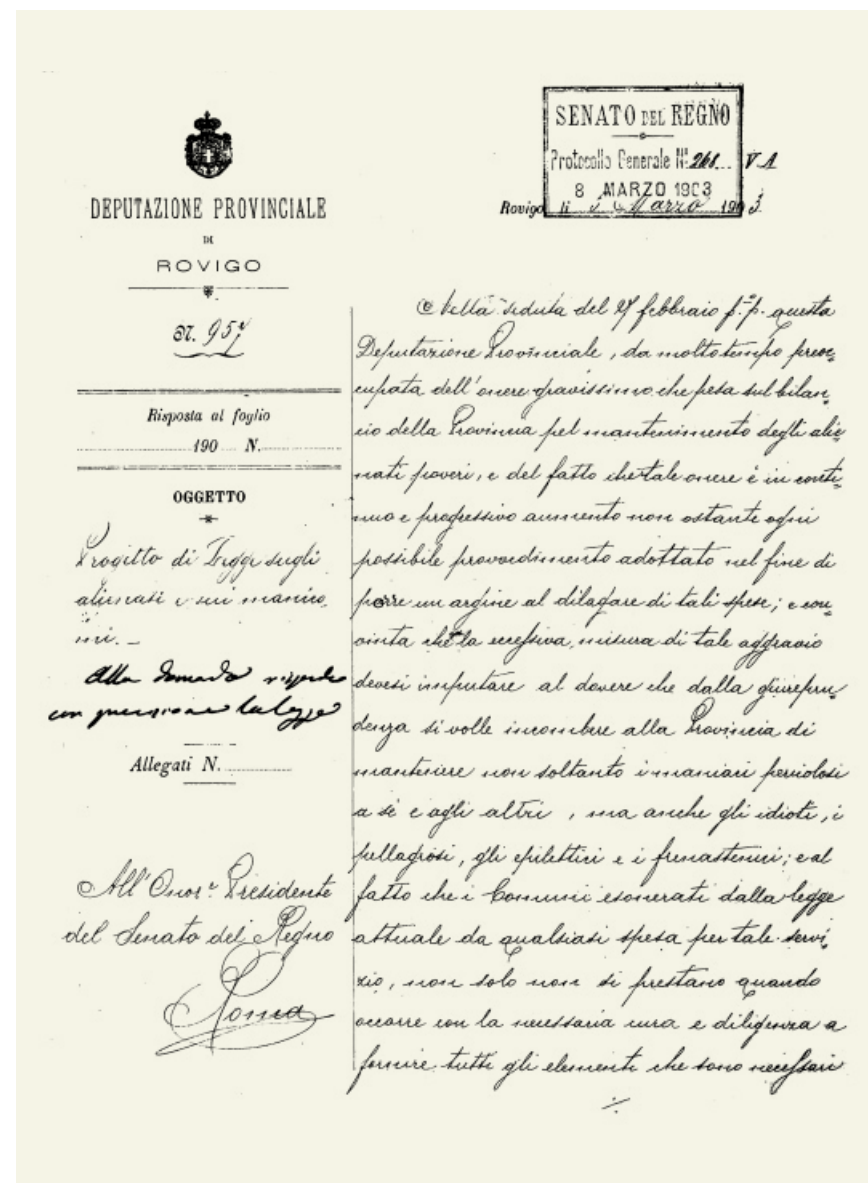 DEPUTAZIONE PROVINCIALE
DI
ROVIGO
N. 957
Risposta al foglio
190 N.
OGGETTO
Progetto di Legge sugli
alienati e sui manico,
mi. _
Alla domanda
Allegati N.
All' Onor.e Presidente
del Senato del Regno
Roma
SENATO DEL REGNO
Protocollo Generale N. 268 V A
8 MARZO 1903
Rovigo li Marzo 1903
Nella seduta del 27 febbraio p.o p. questa
Deputazione Provinciale, da molto tempo preoc,
cupata dell'onere gravissimo che pesa sul bilan,
cio della Provincia pel mantenimento degli alie,
nati poveri, e del fatto che tale onere è in conti,
nuo e progressivo aumento non ostante ogni
possibile provvedimento adottato nel fine di
porre un argine al dilagare di tali spese; e con,
vinta che la eccessiva misura di tale aggravio
devesi imputare al dovere che dalla giurepru,
denza si volle incombere alla Provincia di
mantenere non soltanto i maniaci pericolosi
a sé e agli altri, ma anche gli idioti, i
pellagrosi, gli epilettici e i frenastenici; e al
fatto che i Comuni esonerati dalla legge
attuale da qualsiasi spesa per tale servi,
zio, non solo non si prestano quando
occorre con la necessaria cura e diligenza a
fornire tutti gli elementi che sono necessari
./.